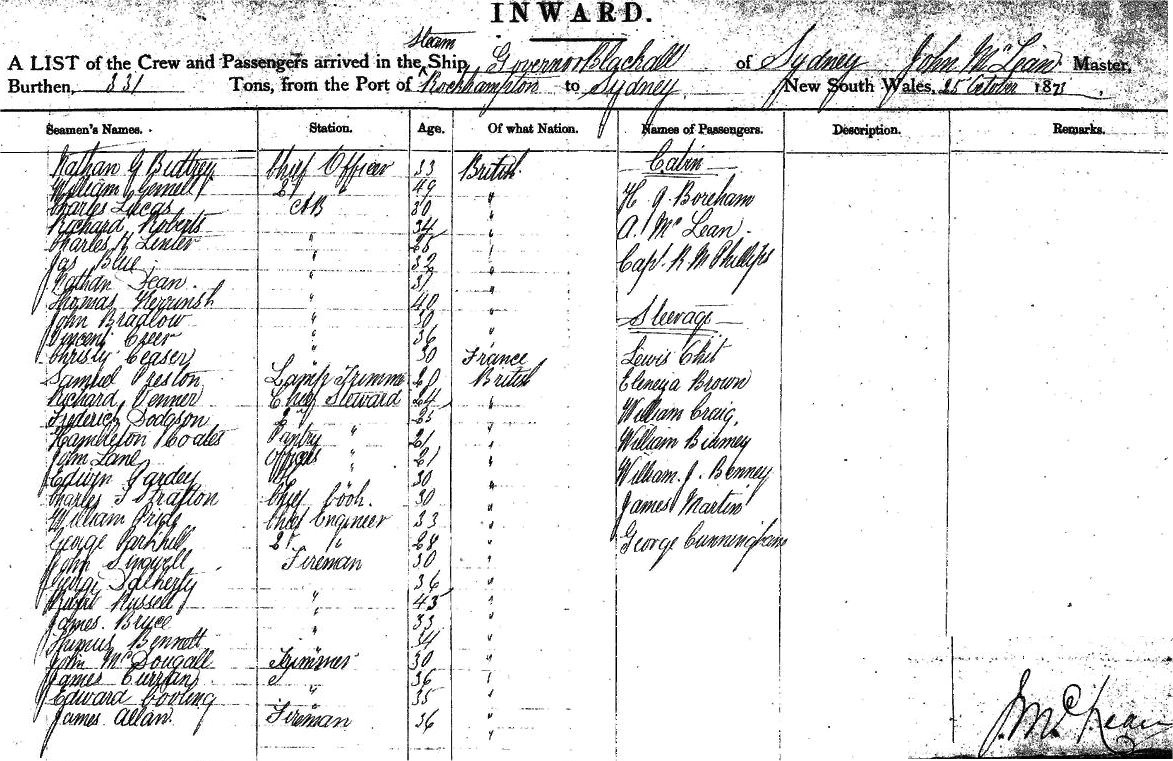 INWARD.
A LIST of the Crew and Passengers arrived in the Steam Ship Governor Blackall of Sydney John McLean Master,
Burthen, 331 Tons, from the Port of Rockhampton to Sydney. New South Wales, 25 October 187
Seamen's Names. Station. Age. Of what Nation. Names of Passengers. Description. Remarks.
Nathan G Chief Officer 33 British Cabin
William Gemmell 2d " 49 " H J. Boreham
Charles Lucas AB 30 "
Richard Roberts " 34 " A. McLean
Charles Linter 25
Jas Blue " 32 " Capt. R McPhillips
Nathan " 37 "
Thomas " 40 "
John Bradlow " 30 " Steerage
Vincent Creer " 36 "
Christy Ceaser " 30 France Lewis Chit
Samuel Preston Lamp Trimmer 20 British Brown
Richard Chief Steward 24 "
Frederick Dodgson 2d 25 " William Craig,
Hambleton Coates Pantry " 21 " William
John Lane Officers " 21 "
Edwin 30 " William. J. Benney
Charles Stratton Chief Cook. 30 James Martin
William Pride Chief Engineer 33 "
George 2d " 28 " George Cunningham
John Fireman 30 "
Docherty 36 "
Robert Russell " 43 "
James Bruce " 33 "
Bennett " 34 "
John McDougall Trimmer 30 "
James Curran 36
Edward Cooling " 35 "
James Allan. Fireman 36 "
J. McLean